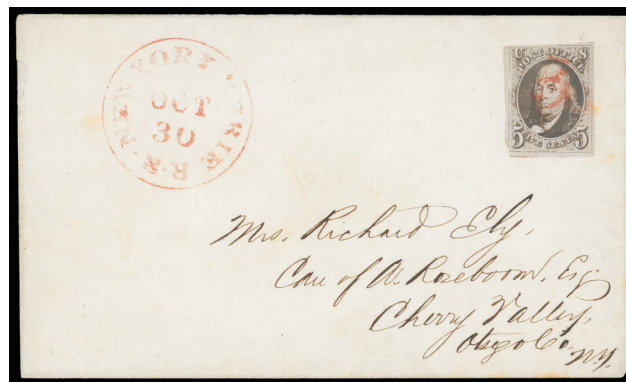 NEW YORK & ERIE R.R.
OCT
30
U S
POST OFFICE
5 FIVE CENTS 5
Mrs. Richard Ely,
Care of A. Roseboom, Esq
Cherry Valley,
Otsego Co.
N.Y.